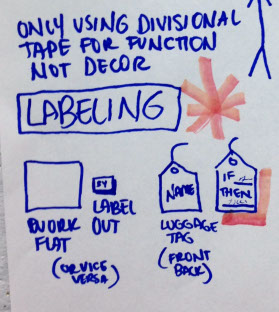 ONLY USING DIVISIONAL
TAPE FOR FUNCTION
NOT DECOR
LABELING
LABEL
OUT
FLAT
(OR VICE
VERSA)
NAME
LUGGAGE
TAG
(FRONT
BACK)
IF
THEN